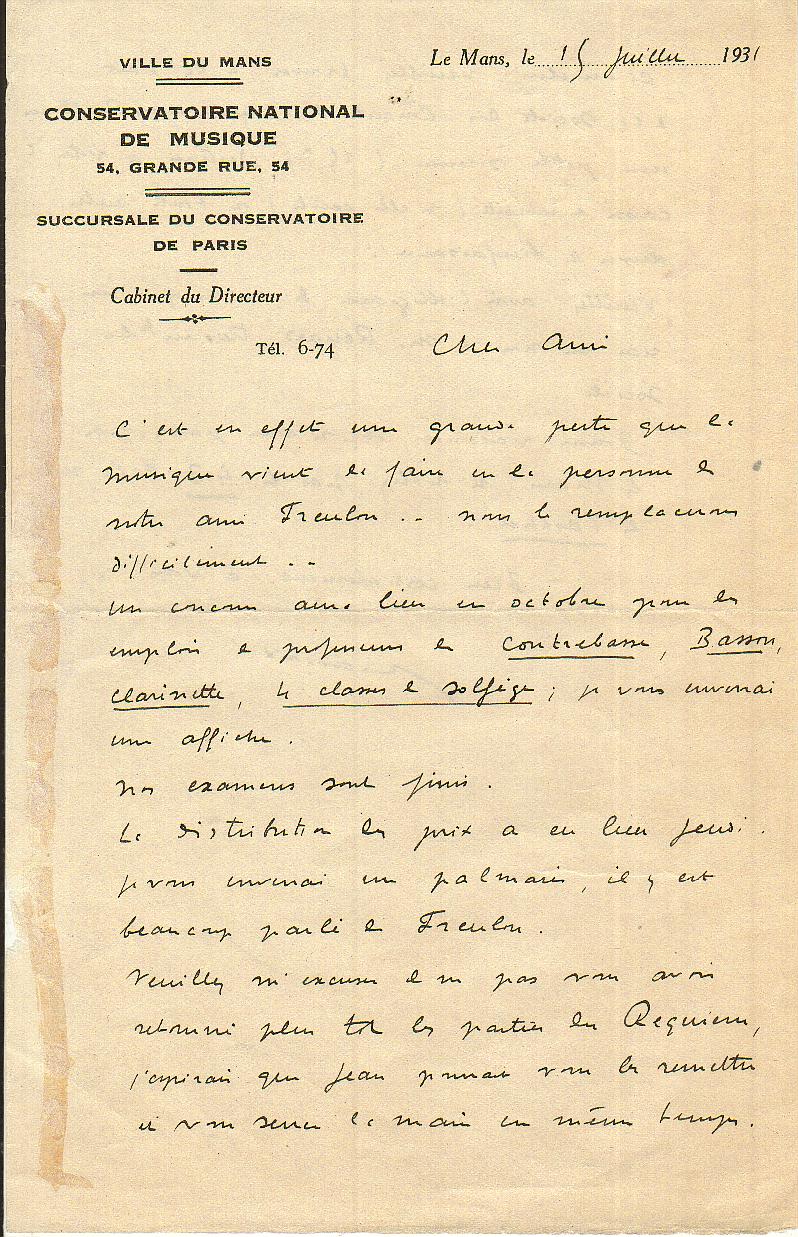 VILLE DU MANS
Le Mans, le 15 Juillet 1931
CONSERVATOIRE NATIONAL
DE MUSIQUE
54, GRANDE RUE, 54
SUCCURSALE DU CONSERVATOIRE
DE PARIS
Cabinet du Directeur
Tél. 6-74
Cher Ami
C'est en effet une grande perte que la
musique vient de faire en la personne de
notre ami Freulon .. nous le remplacerons
difficilement ..
un concours aura lieu en octobre pour les
emplois de professeurs de Contrebasse, Basson,
clarinette, 4 classes de solfège ; je vous enverrai
une affiche.
Nos examens sont finis.
La distribution des prix a eu lieu Jeudi.
je vous enverrai un palmarès, il y est
beaucoup parlé de Freulon.
Veuillez m'excuser de ne pas vous avoir
retourné plus tôt les parties du Requiem,
j'espérais que Jean pourrait vous les remettre
et vous serrer la main en même temps.